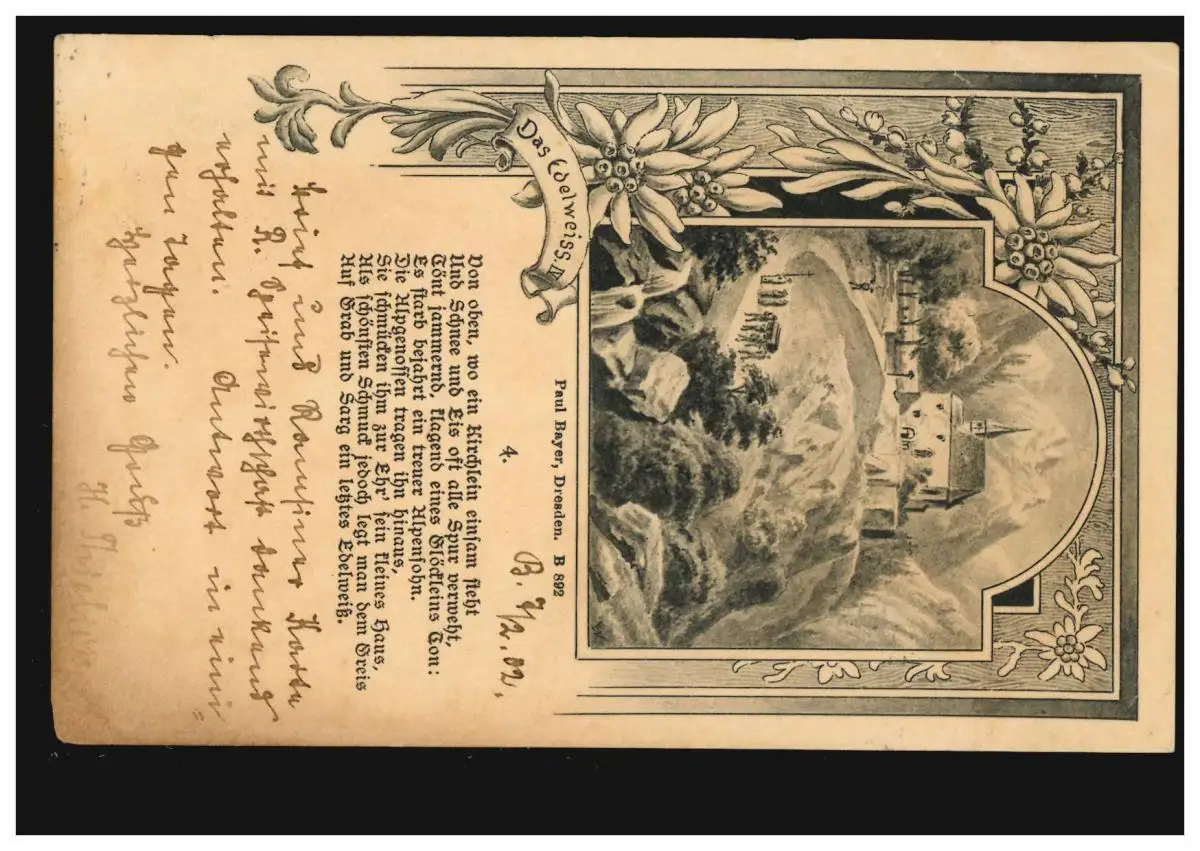 Das Edelweiss. IV
Paul Bayer, Dresden. B 892
B. 7/2. 02.
4.
Von oben, wo ein Kirchlein einsam steht
Und Schnee und Eis oft alle Spur verweht,
Tönt jammernd, klagend eines Glöckleins Ton:
Es starb bejahrt ein treuer Alpensohn.
Die Alpgenossen tragen ihn hinaus,
Sie schmücken ihm zur Ehr' sein kleines Haus,
Als schönsten Schmuck jedoch legt man dem Greis
Auf Grab und Sarg ein letztes Edelweiß.
und Karte
mit R. dankend
erhalten. Antwort in eini=
gen Tagen.
Herzlichen Gruß
H.